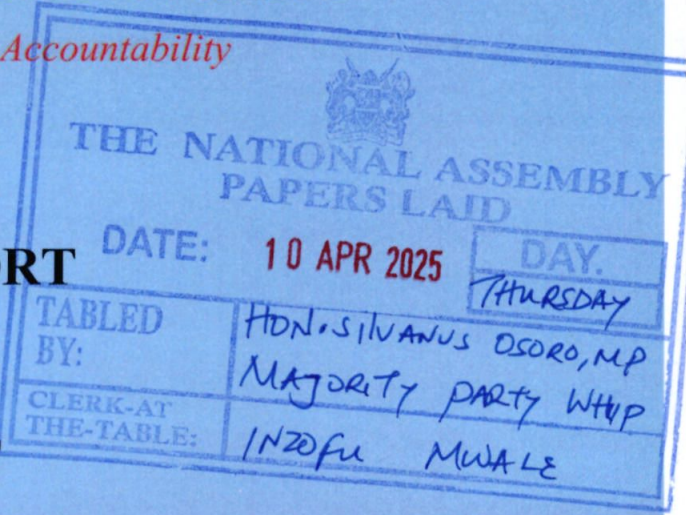 Accountability
THE NATIONAL ASSEMBLY
PAPERS LAID
DATE: 10 APR 2025 DAY.
THURSDAY
RT
TABLED BY: HON. SILVANUS OSORO, MP
MAJORITY PARTY WHIP
CLERK-AT THE-TABLE: INZOFU MWALE